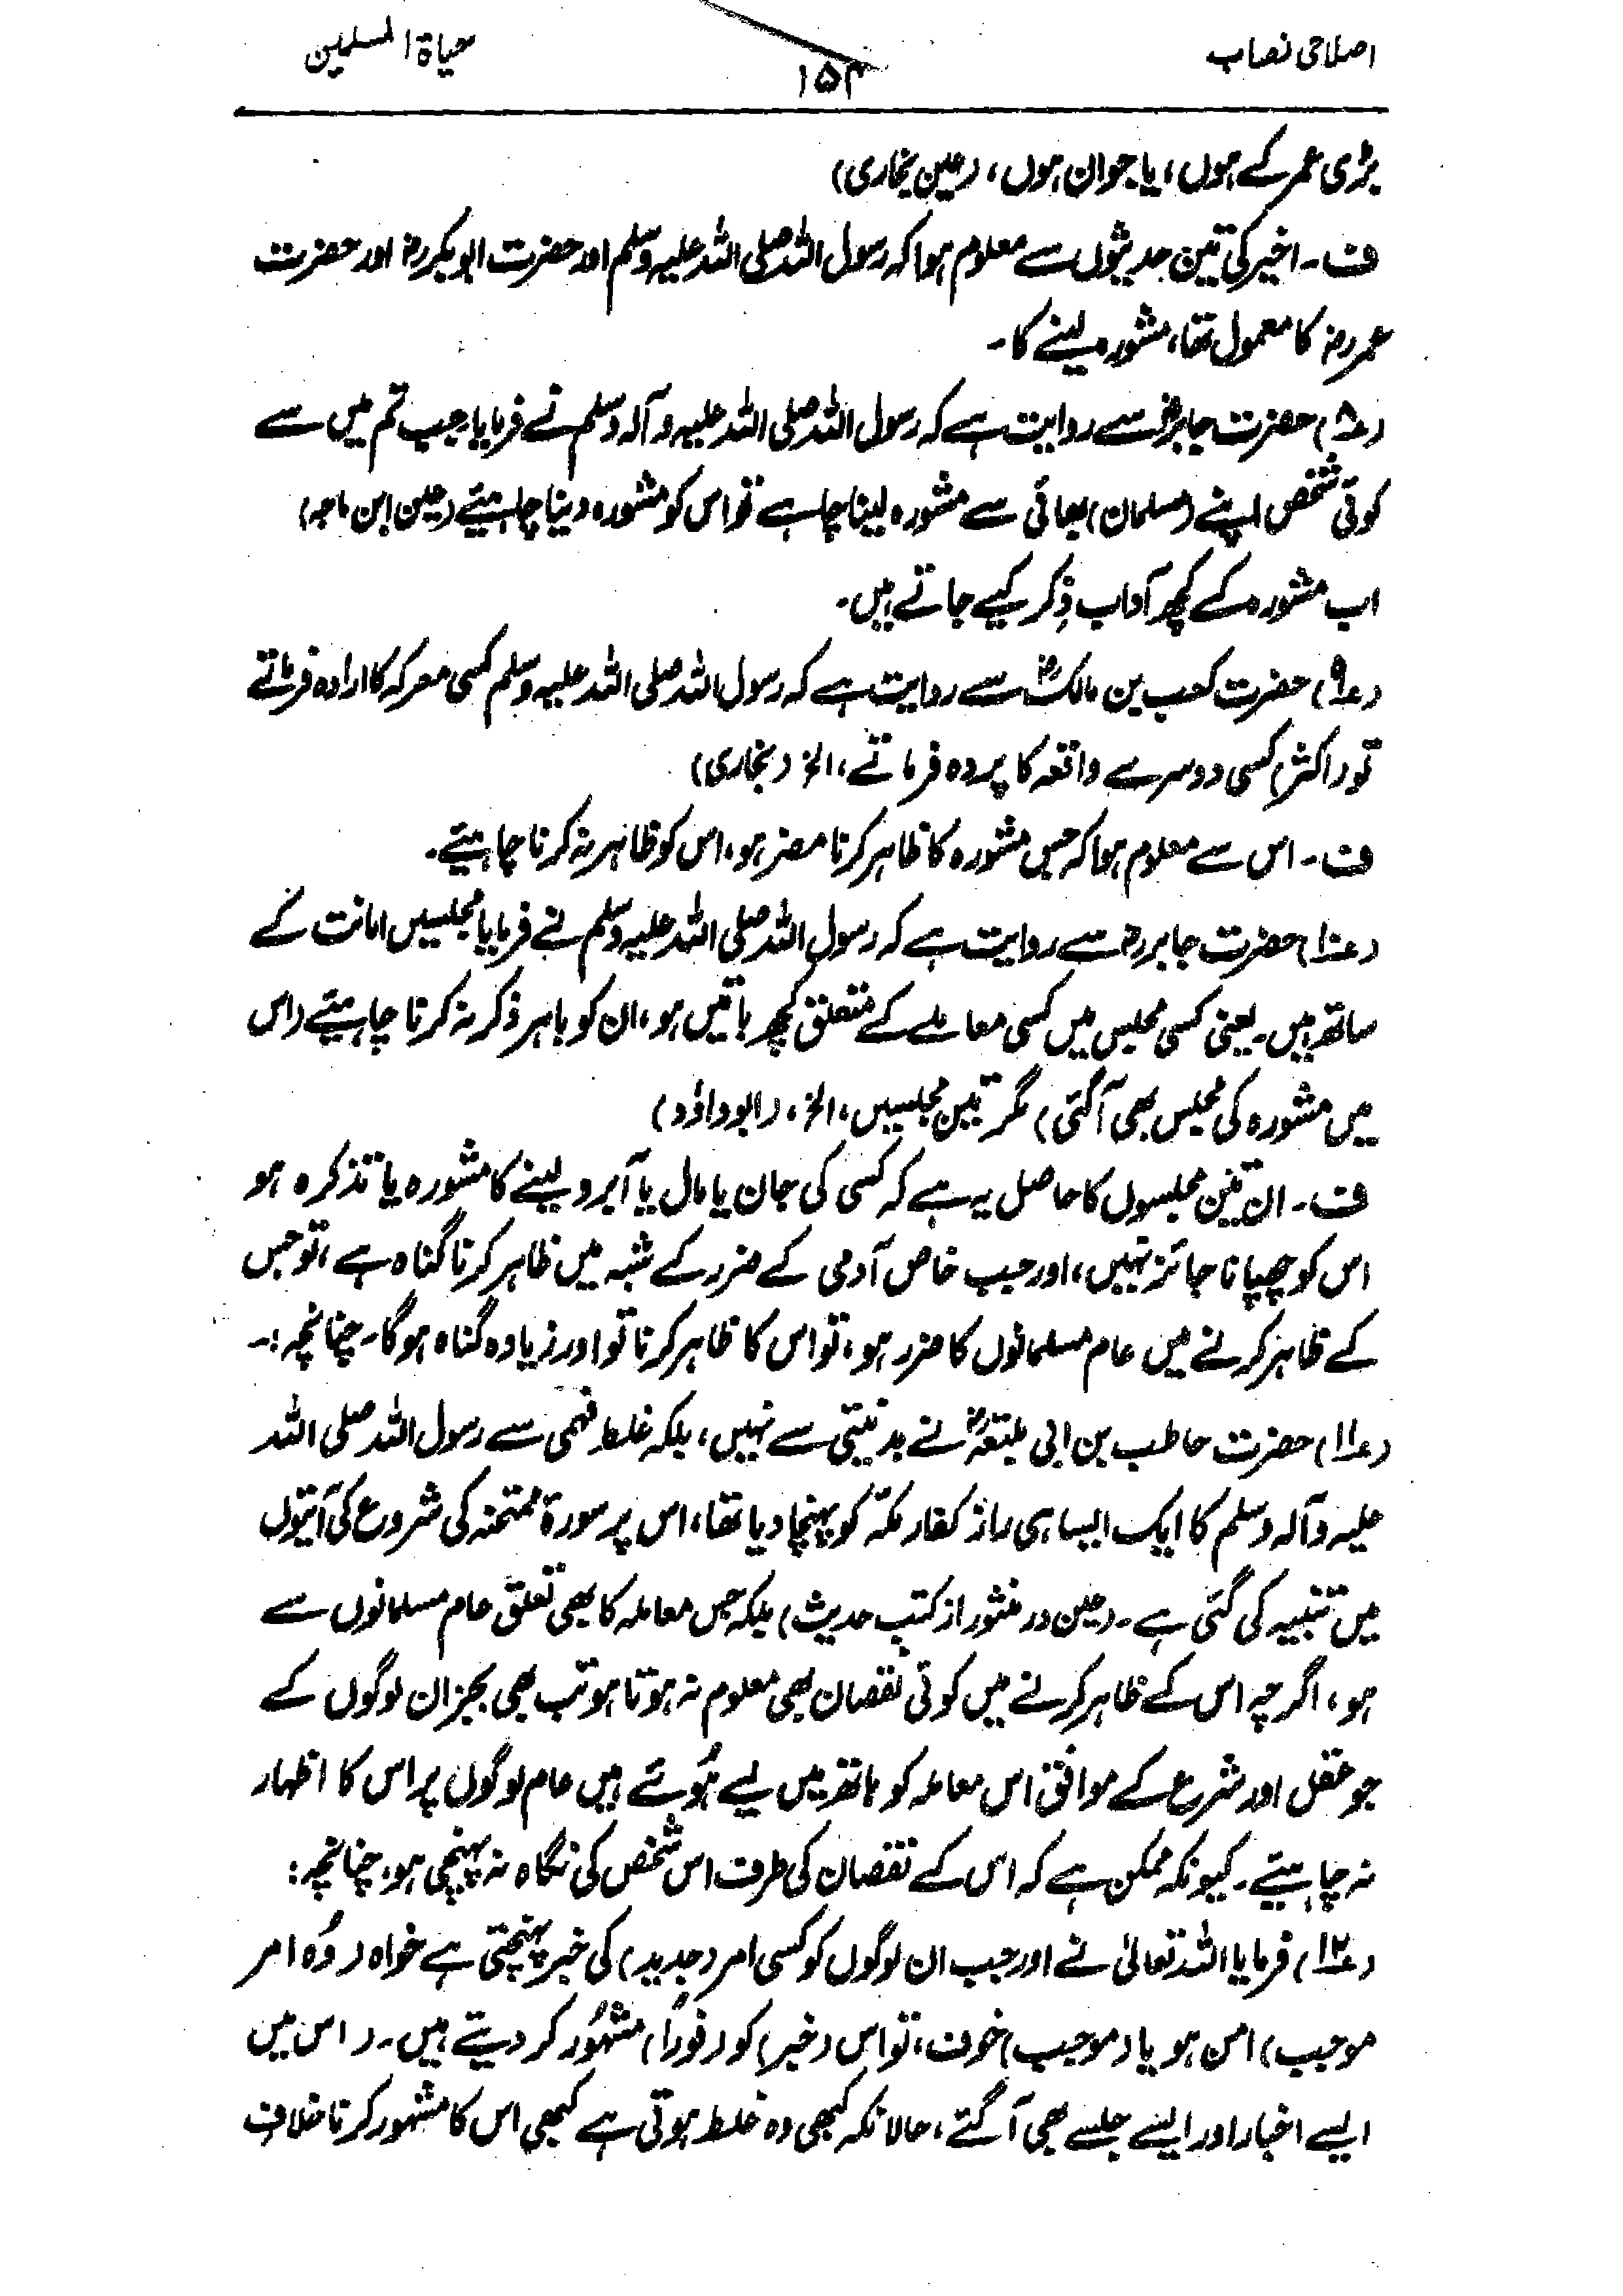 اصلاحی نصاب
۱۵۴
حیاۃ المسلمین
بڑی عمر کے ہوں، یا جوان ہوں، (عین بخاری)
ف۔ اخیر کی تین حدیثوں سے معلوم ہوا کہ رسول اللہ صلی اللہ علیہ وسلم اور حضرت ابوبکر رض اور حضرت
عمر رض کا معمول تھا، مشورہ لینے کا۔
(ع۸) حضرت جابر رض سے روایت ہے کہ رسول اللہ صلی اللہ علیہ وآلہ وسلم نے فرمایا جب تم میں سے
کوئی شخص اپنے (مسلمان) بھائی سے مشورہ لینا چاہے تو اس کو مشورہ دینا چاہیئے (عین ابن ماجہ)
اب مشورہ کے کچھ آداب ذِکر کیے جاتے ہیں۔
(ع۹) حضرت کعب بن مالک رض سے روایت ہے کہ رسول اللہ صلی اللہ علیہ وسلم کسی معرکہ کا ارادہ فرماتے
تو (اکثر) کسی دوسرے واقعہ کا پردہ فرماتے، الخ (بخاری)
ف۔ اس سے معلوم ہوا کہ جس مشورہ کا ظاہر کرنا مضر ہو، اس کو ظاہر نہ کرنا چاہیئے۔
(ع۱۰) حضرت جابر رض سے روایت ہے کہ رسول اللہ صلی اللہ علیہ وسلم نے فرمایا مجلسیں امانت کے
ساتھ ہیں۔ یعنی کسی مجلس میں کسی معاملے کے متعلق کچھ باتیں ہو، ان کو باہر ذکر نہ کرنا چاہیئے (اس
میں مشورہ کی مجلس بھی آگئی) مگر تین مجلسیں، الخ، (ابو داؤد)
ف۔ ان تین مجلسوں کا حاصل یہ ہے کہ کسی کی جان یا مال یا آبرو لینے کا مشورہ یا تذکرہ ہو
اس کو چھپانا جائز نہیں، اور جب خاص آدمی کے ضرر کے شبہ میں ظاہر کرنا گناہ ہے، تو جس
کے ظاہر کرنے میں عام مسلمانوں کا ضرر ہو، تو اس کا ظاہر کرنا تو اور زیادہ گناہ ہوگا۔ چنانچہ:۔
(ع۱۱) حضرت حاطب بن ابی بلتعہ رض نے بدنیتی سے نہیں، بلکہ غلط فہمی سے رسول اللہ صلی اللہ
علیہ وآلہ وسلم کا ایک ایسا ہی راز کفار مکّہ کو پہنچا دیا تھا، اس پر سورۃ ممتحنہ کی شروع کی آیتوں
میں تنبیہ کی گئی ہے۔ (عین در منثور از کتب حدیث) بلکہ جس معاملہ کا بھی تعلق عام مسلمانوں سے
ہو، اگرچہ اس کے ظاہر کرنے میں کوئی نقصان بھی معلوم نہ ہوتا ہو تب بھی بجز ان لوگوں کے
جو عقل اور شرع کے موافق اس معاملہ کو ہاتھ میں لیے ہُوئے ہیں عام لوگوں پر اس کا اظہار
نہ چاہیئے۔ کیونکہ ممکن ہے کہ اس کے نقصان کی طرف اس شخص کی نگاہ نہ پہنچی ہو، چنانچہ:
(ع۱۲) فرمایا اللہ تعالیٰ نے اور جب ان لوگوں کو کسی امر (جدید) کی خبر پہنچتی ہے خواہ (وُہ امر
موجب) امن ہو یا (موجب) خوف، تو اس (خبر) کو (فوراً) مشہُور کر دیتے ہیں۔ (اس میں
ایسے اخبار اور ایسے جلسے بھی آگئے، حالانکہ کبھی وہ غلط ہوتی ہے کبھی اس کا مشہور کرنا خلاف